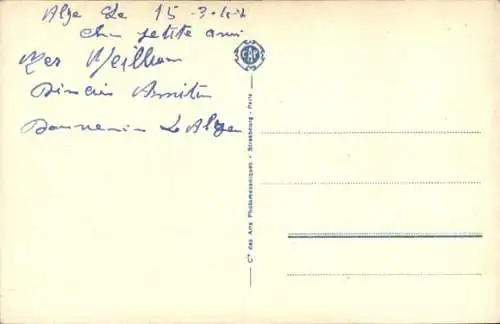 Alger Le 15 -3-
petite ami
Mes Meilleur
Sincère Amitié
Souvenir D Alger
CAP
Cie des Arts Photomécaniques • Strasbourg - Paris